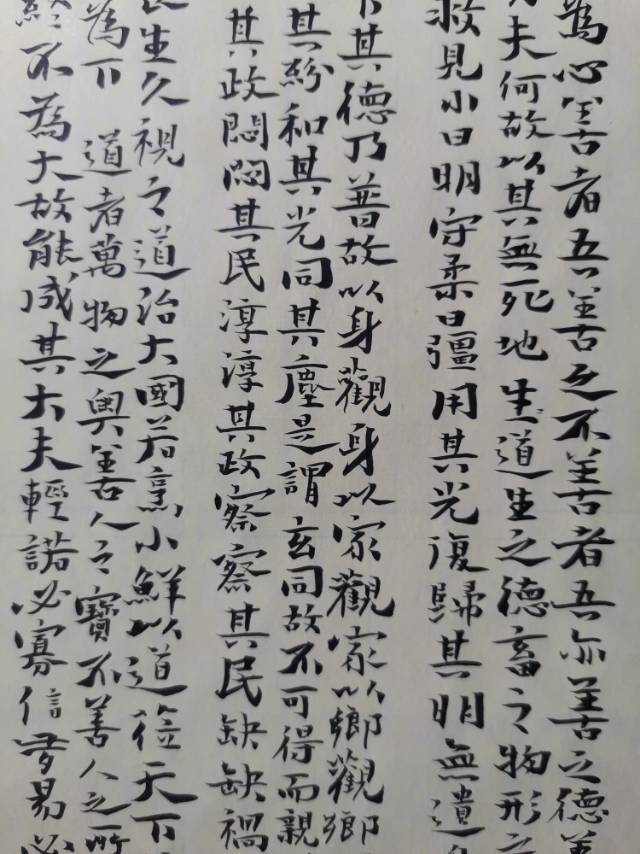 為心善者吾善之不善者吾亦善之德善
夫何故以其無死地 生道生之德畜之物形之
救見小曰明守柔曰彊用其光復歸其明無遺
下其德乃普故以身觀身以家觀家以鄉觀鄉
其紛和其光同其塵是謂玄同故不可得而親
其政悶悶其民淳淳其政察察其民缺缺禍
長生久視之道治大國若烹小鮮以道莅天下
為下 道者萬物之奧善人之寶不善人之所
終不為大故能成其大夫輕諾必寡信多易必